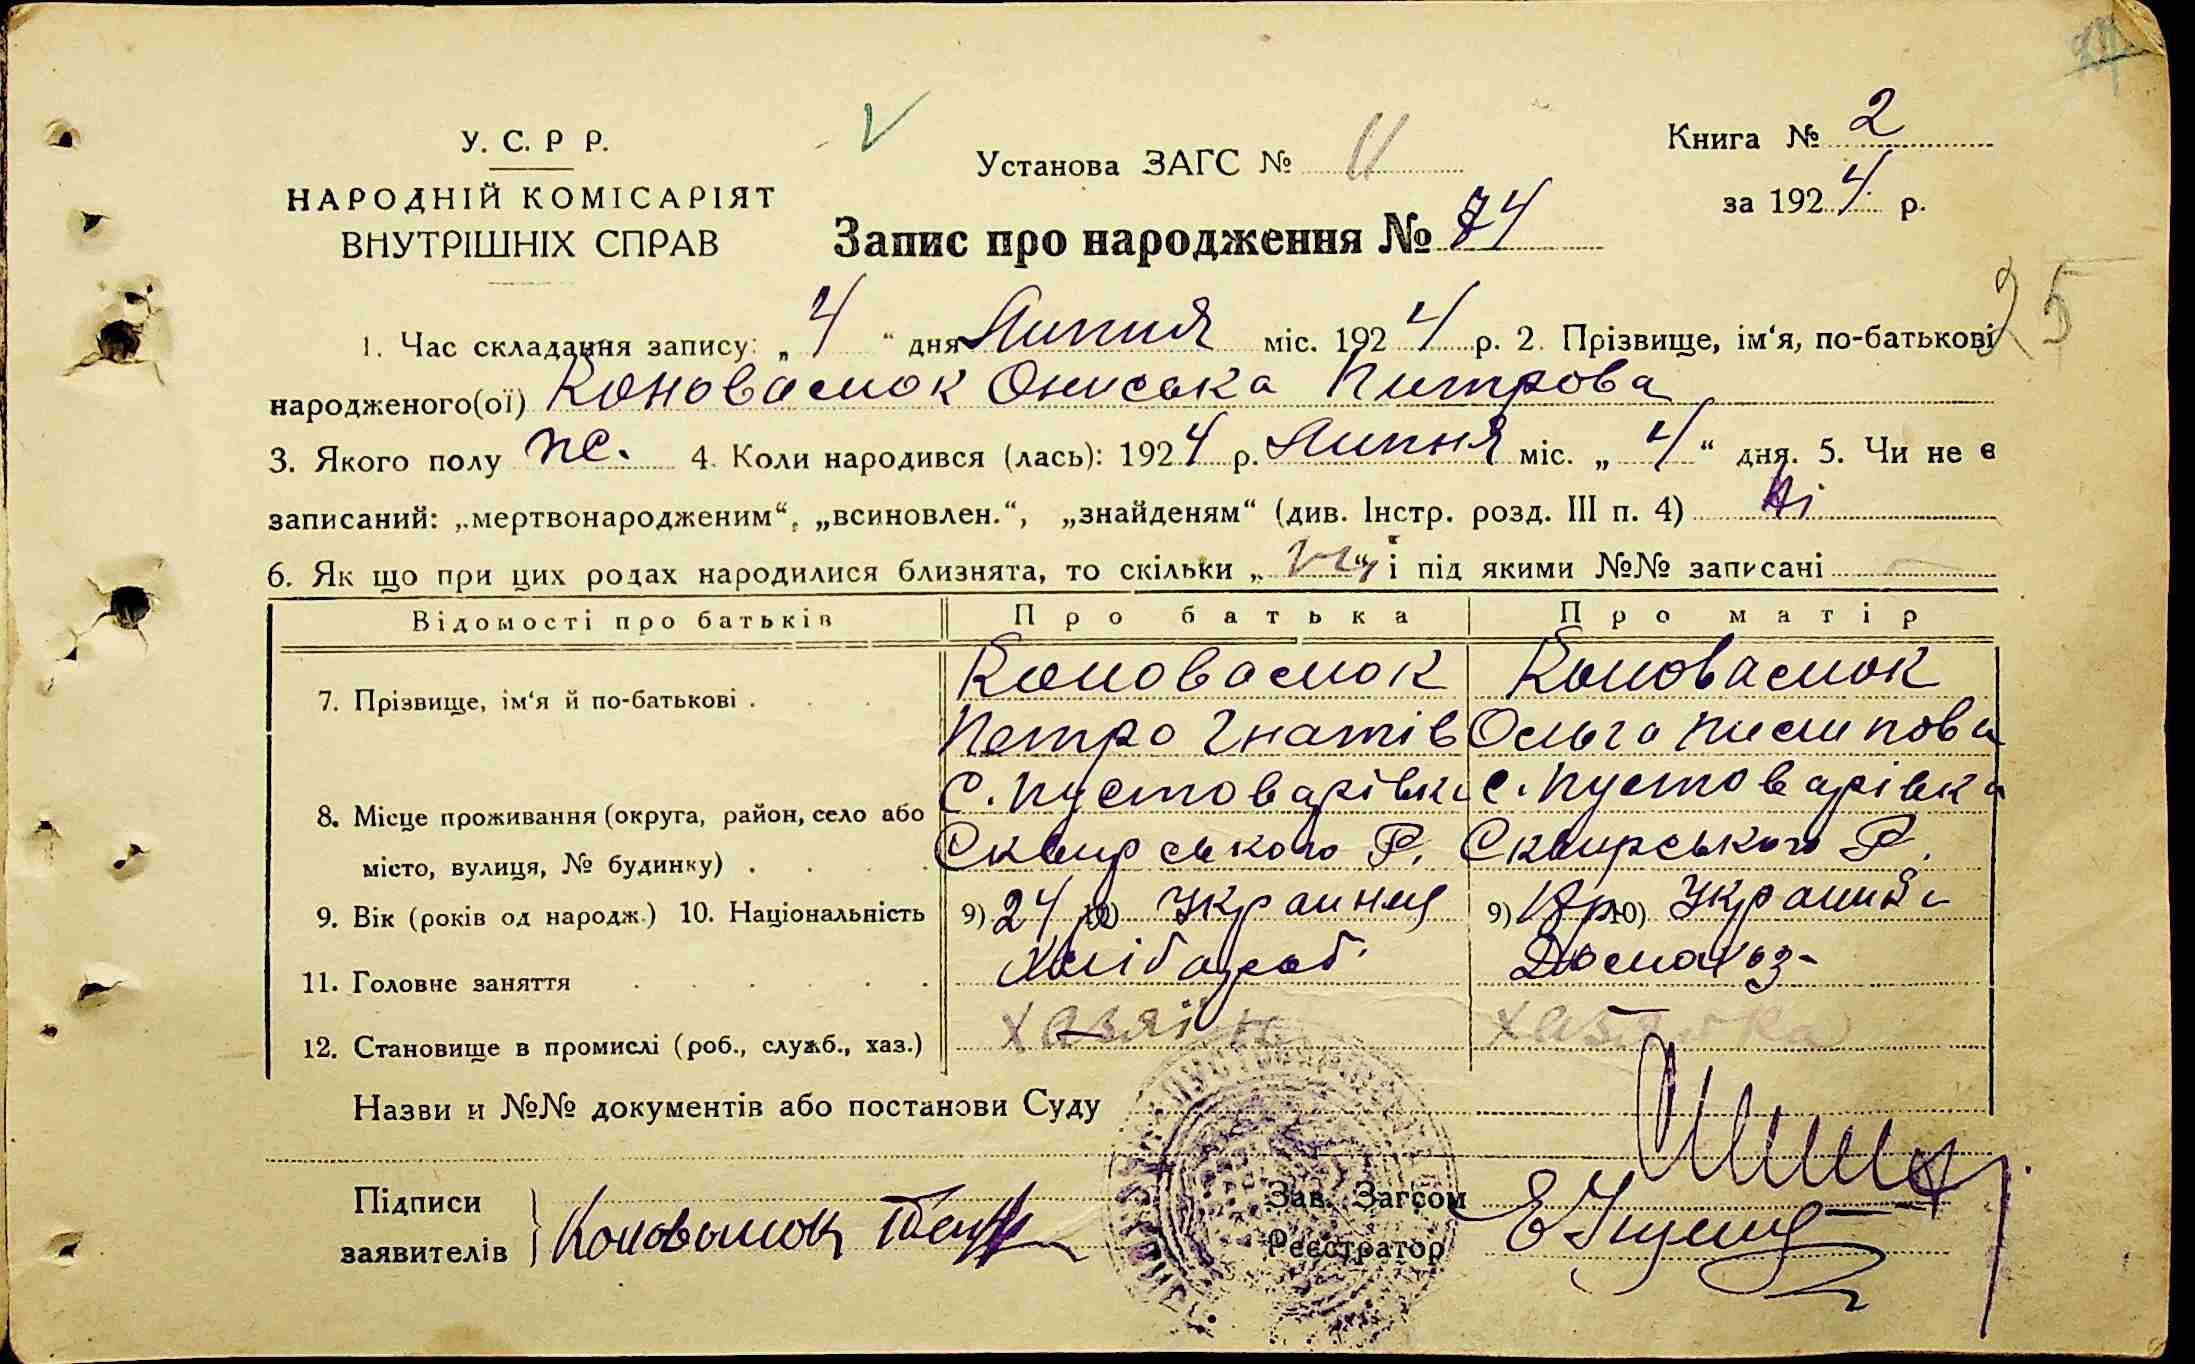 У. С. Р Р.
НАРОДНІЙ КОМІСАРІЯТ
ВНУТРІШНІХ СПРАВ
Установа ЗАГС № 11
Книга № 2
за 1924 р.
Запис про народження № 74
25
1. Час складання запису: „4“ дня Липня міс. 1924 р. 2. Прізвище, ім‘я, по-батькові
народженого(ої) Коновалюк Ониська Питрова
3. Якого полу ж. 4. Коли народився (лась): 1924 р. Липня міс. „4“ дня. 5. Чи не є
записаний: „мертвонародженим“, „всиновлен.“, „знайденям“ (див. Інстр. розд. III п. 4) Ні
6. Як що при цих родах народилися близнята, то скільки „ “ і під якими №№ записані
Відомості про батьків Про батька Про матір
7. Прізвище, ім‘я й по-батькові . Коновалюк Коновалюк
Петро Гнатів Ольга Пилипова
8. Місце проживання (округа, район, село або С. Пустоварівка С. Пустоварівка
місто, вулиця, № будинку) . Сквирського Р. Сквирського Р.
9. Вік (років од народж.) 10. Національність 9) 24 р 10) Украинец 9) 18 р 10)
11. Головне заняття Хлібароб. Домахоз-
12. Становище в промислі (роб., служб., хаз.) хазяїн хазяйка
Назви и №№ документів або постанови Суду
Підписи
заявителів Коновалюк
Зав. Загсом
Реєстратор